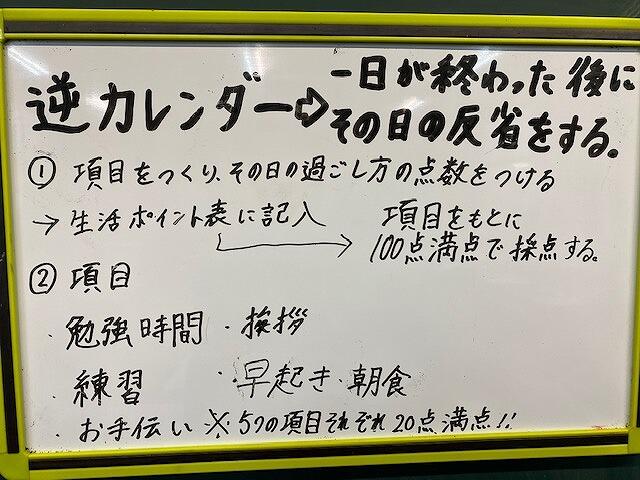 逆カレンダー⇨一日が終わった後に
その日の反省をする。
① 項目をつくり、その日の過ごし方の点数をつける
→ 生活ポイント表に記入
項目をもとに
100点満点で採点する。
② 項目
・勉強時間 ・挨拶
・練習 ・早起き・朝食
・お手伝い ※5つの項目それぞれ20点満点!!